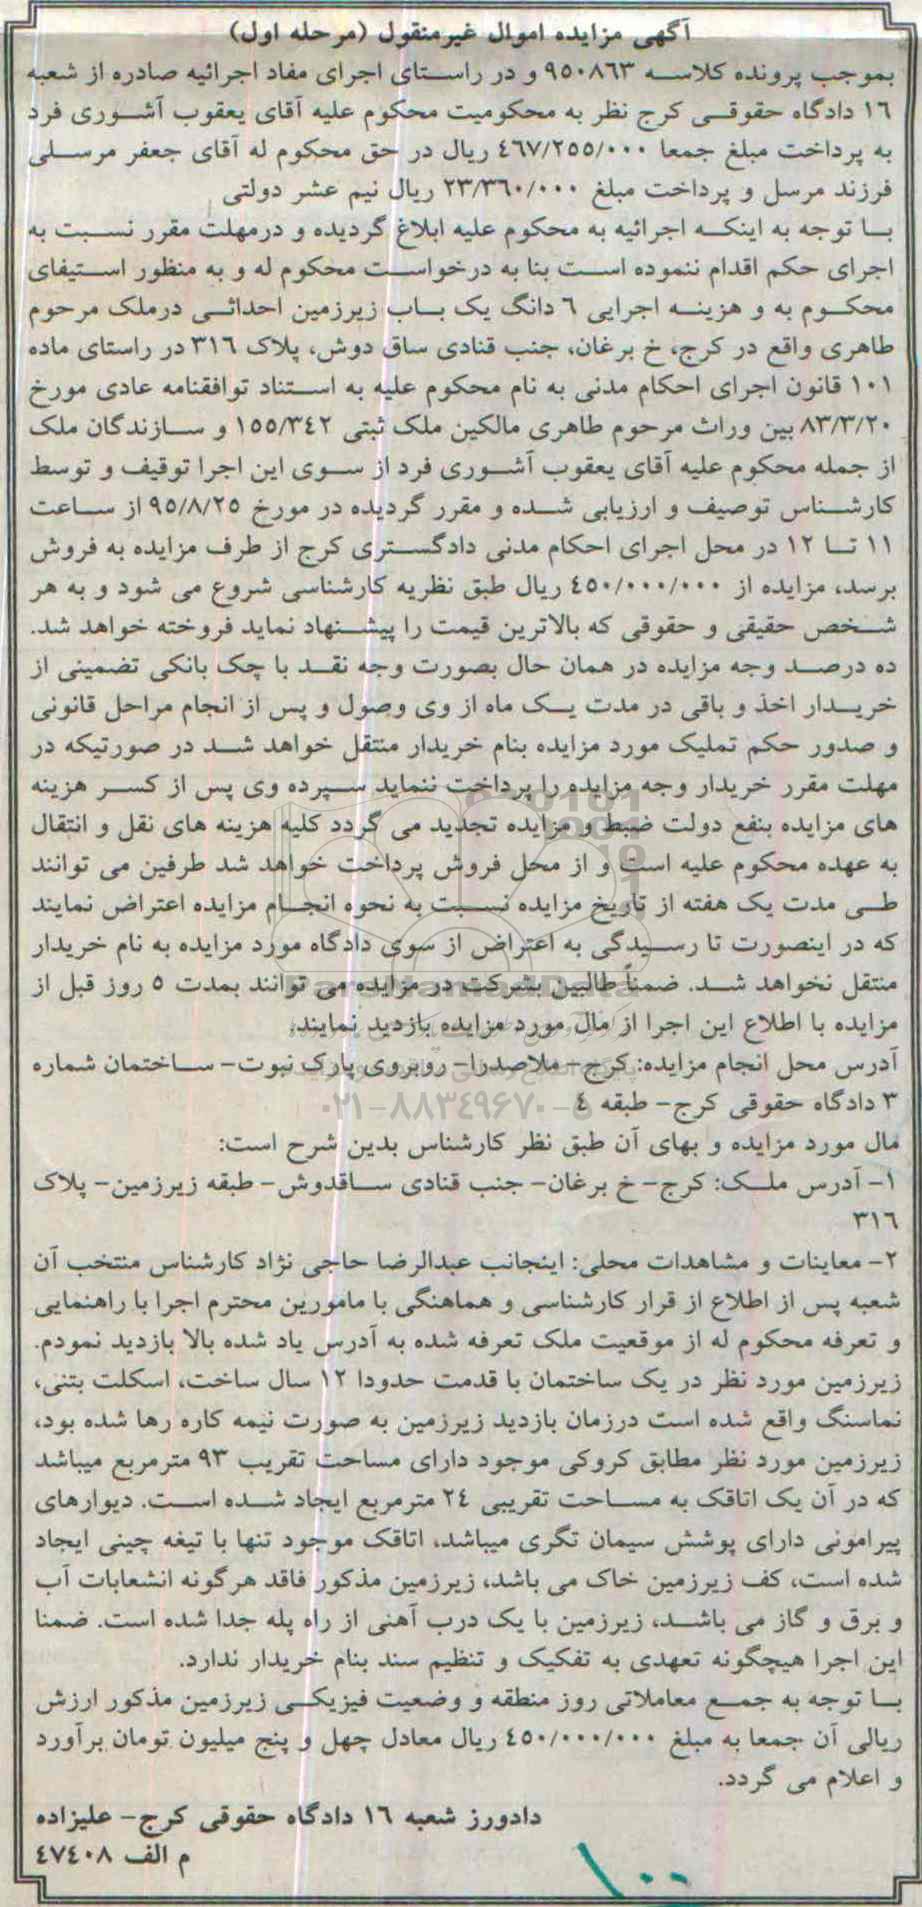 آگهی مزایده اموال غیرمنقول (مرحله اول)
بموجب پرونده کلاسه ۹۵۰۸۶۳ و در راستای اجرای مفاد اجرائیه صادره از شعبه
۱۶ دادگاه حقوقی کرج نظر به محکومیت محکوم علیه آقای یعقوب آشوری فرد
به پرداخت مبلغ جمعا ۴۶۷/۲۵۵/۰۰۰ ریال در حق محکوم له آقای جعفر مرسلی
فرزند مرسل و پرداخت مبلغ ۲۳/۳۶۰/۰۰۰ ریال نیم عشر دولتی
با توجه به اینکه اجرائیه به محکوم علیه ابلاغ گردیده و درمهلت مقرر نسبت به
اجرای حکم اقدام ننموده است بنا به درخواست محکوم له و به منظور استیفای
محکوم به و هزینه اجرایی ۶ دانگ یک باب زیرزمین احداثی درملک مرحوم
طاهری واقع در کرج، خ برغان، جنب قنادی ساق دوش، پلاک ۳۱۶ در راستای ماده
۱۰۱ قانون اجرای احکام مدنی به نام محکوم علیه به استناد توافقنامه عادی مورخ
۸۳/۳/۲۰ بین وراث مرحوم طاهری مالکین ملک ثبتی ۱۵۵/۳۴۲ و سازندگان ملک
از جمله محکوم علیه آقای یعقوب آشوری فرد از سوی این اجرا توقیف و توسط
کارشناس توصیف و ارزیابی شده و مقرر گردیده در مورخ ۹۵/۸/۲۵ از ساعت
۱۱ تا ۱۲ در محل اجرای احکام مدنی دادگستری کرج از طرف مزایده به فروش
برسد، مزایده از ۴۵۰/۰۰۰/۰۰۰ ریال طبق نظریه کارشناسی شروع می شود و به هر
شخص حقیقی و حقوقی که بالاترین قیمت را پیشنهاد نماید فروخته خواهد شد.
ده درصد وجه مزایده در همان حال بصورت وجه نقد با چک بانکی تضمینی از
خریدار اخذ و باقی در مدت یک ماه از وی وصول و پس از انجام مراحل قانونی
و صدور حکم تملیک مورد مزایده بنام خریدار منتقل خواهد شد در صورتیکه در
مهلت مقرر خریدار وجه مزایده را پرداخت ننماید سپرده وی پس از کسر هزینه
های مزایده بنفع دولت ضبط و مزایده تجدید می گردد کلیه هزینه های نقل و انتقال
به عهده محکوم علیه است و از محل فروش پرداخت خواهد شد طرفین می توانند
طی مدت یک هفته از تاریخ مزایده نسبت به نحوه انجام مزایده اعتراض نمایند
که در اینصورت تا رسیدگی به اعتراض از سوی دادگاه مورد مزایده به نام خریدار
منتقل نخواهد شد. ضمناً طالبین بشرکت در مزایده می توانند بمدت ۵ روز قبل از
مزایده با اطلاع این اجرا از مال مورد مزایده بازدید نمایند.
آدرس محل انجام مزایده: کرج- ملاصدرا- روبروی پارک نبوت- ساختمان شماره
۳ دادگاه حقوقی کرج- طبقه ۴
۰۲۱-۸۸۳۴۹۶۷۰-۵
مال مورد مزایده و بهای آن طبق نظر کارشناس بدین شرح است:
۱- آدرس ملک: کرج- خ برغان- جنب قنادی ساقدوش- طبقه زیرزمین- پلاک
۳۱۶
۲- معاینات و مشاهدات محلی: اینجانب عبدالرضا حاجی نژاد کارشناس منتخب آن
شعبه پس از اطلاع از قرار کارشناسی و هماهنگی با مامورین محترم اجرا با راهنمایی
و تعرفه محکوم له از موقعیت ملک تعرفه شده به آدرس یاد شده بالا بازدید نمودم.
زیرزمین مورد نظر در یک ساختمان با قدمت حدودا ۱۲ سال ساخت، اسکلت بتنی،
نماسنگ واقع شده است درزمان بازدید زیرزمین به صورت نیمه کاره رها شده بود،
زیرزمین مورد نظر مطابق کروکی موجود دارای مساحت تقریب ۹۳ مترمربع میباشد
که در آن یک اتاقک به مساحت تقریبی ۲۴ مترمربع ایجاد شده است. دیوارهای
پیرامونی دارای پوشش سیمان تگری میباشد، اتاقک موجود تنها با تیغه چینی ایجاد
شده است، کف زیرزمین خاک می باشد، زیرزمین مذکور فاقد هرگونه انشعابات آب
و برق و گاز می باشد، زیرزمین با یک درب آهنی از راه پله جدا شده است. ضمنا
این اجرا هیچگونه تعهدی به تفکیک و تنظیم سند بنام خریدار ندارد.
با توجه به جمع معاملاتی روز منطقه و وضعیت فیزیکی زیرزمین مذکور ارزش
ریالی آن جمعا به مبلغ ۴۵۰/۰۰۰/۰۰۰ ریال معادل چهل و پنج میلیون تومان برآورد
و اعلام می گردد.
دادورز شعبه ۱۶ دادگاه حقوقی کرج- علیزاده
م الف ۴۷۴۰۸
۱۰۰